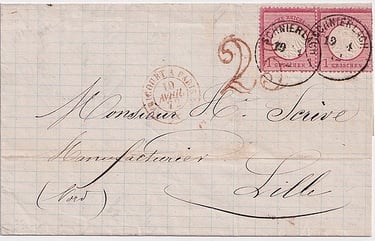 SCHNIERLACH
19 4
SCHNIERLACH
19 4
1 GROSCHEN 1
1 GROSCHEN 1
AVRIL
2
Monsieur H. Scrive
Manufacturier
Lille
(Nord)